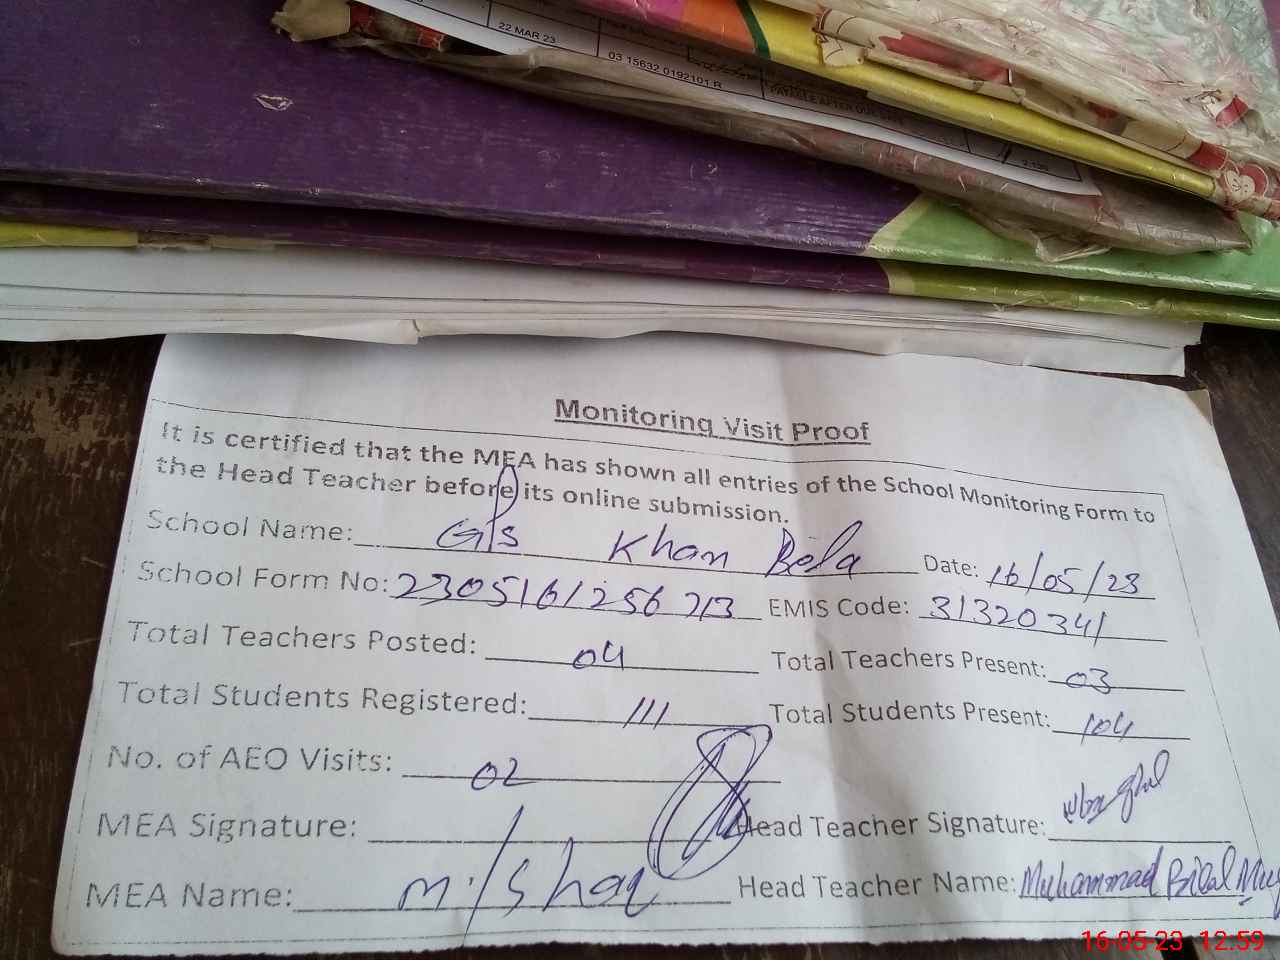 22 MAR 23
03 15632 0192101 R
PAYABLE AFTER DUE DATE
Monitoring Visit Proof
It is certified that the MEA has shown all entries of the School Monitoring Form to
the Head Teacher before its online submission.
School Name: G/s Khan Bela Date: 16/05/23
School Form No: 2305161256713 EMIS Code: 31320341
Total Teachers Posted: 04 Total Teachers Present: 03
Total Students Registered: 111 Total Students Present: 104
No. of AEO Visits: 02
MEA Signature: Head Teacher Signature:
MEA Name: M. Ishaq Head Teacher Name: Muhammad Bilal
16-05-23 12:59